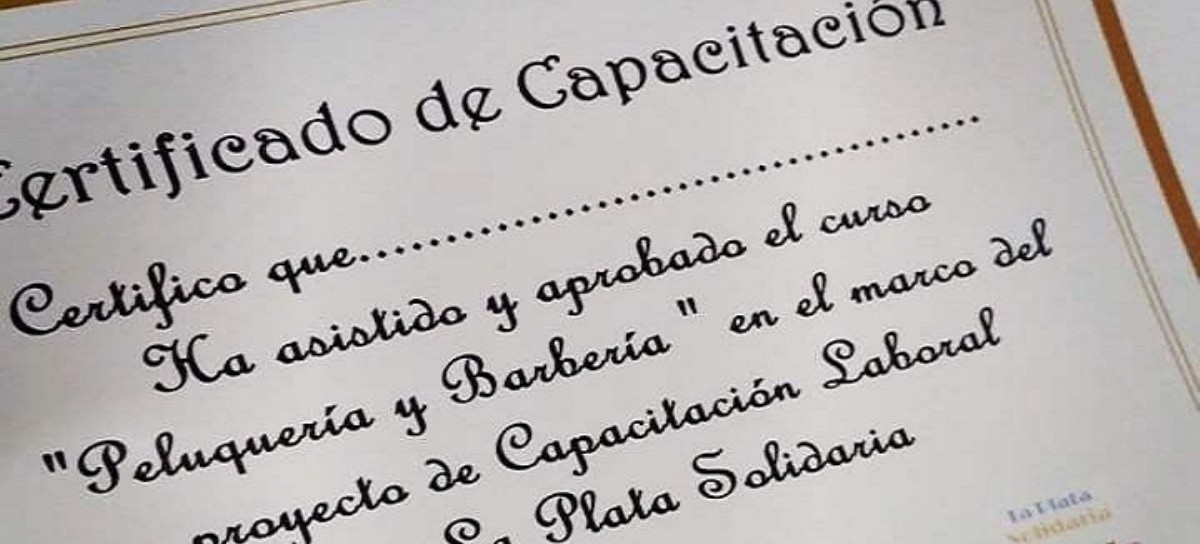 Certificado de Capacitación
Certifico que........................................
Ha asistido y aprobado el curso
"Peluquería y Barbería" en el marco del
proyecto de Capacitación Laboral
La Plata Solidaria
La Plata
Solidaria